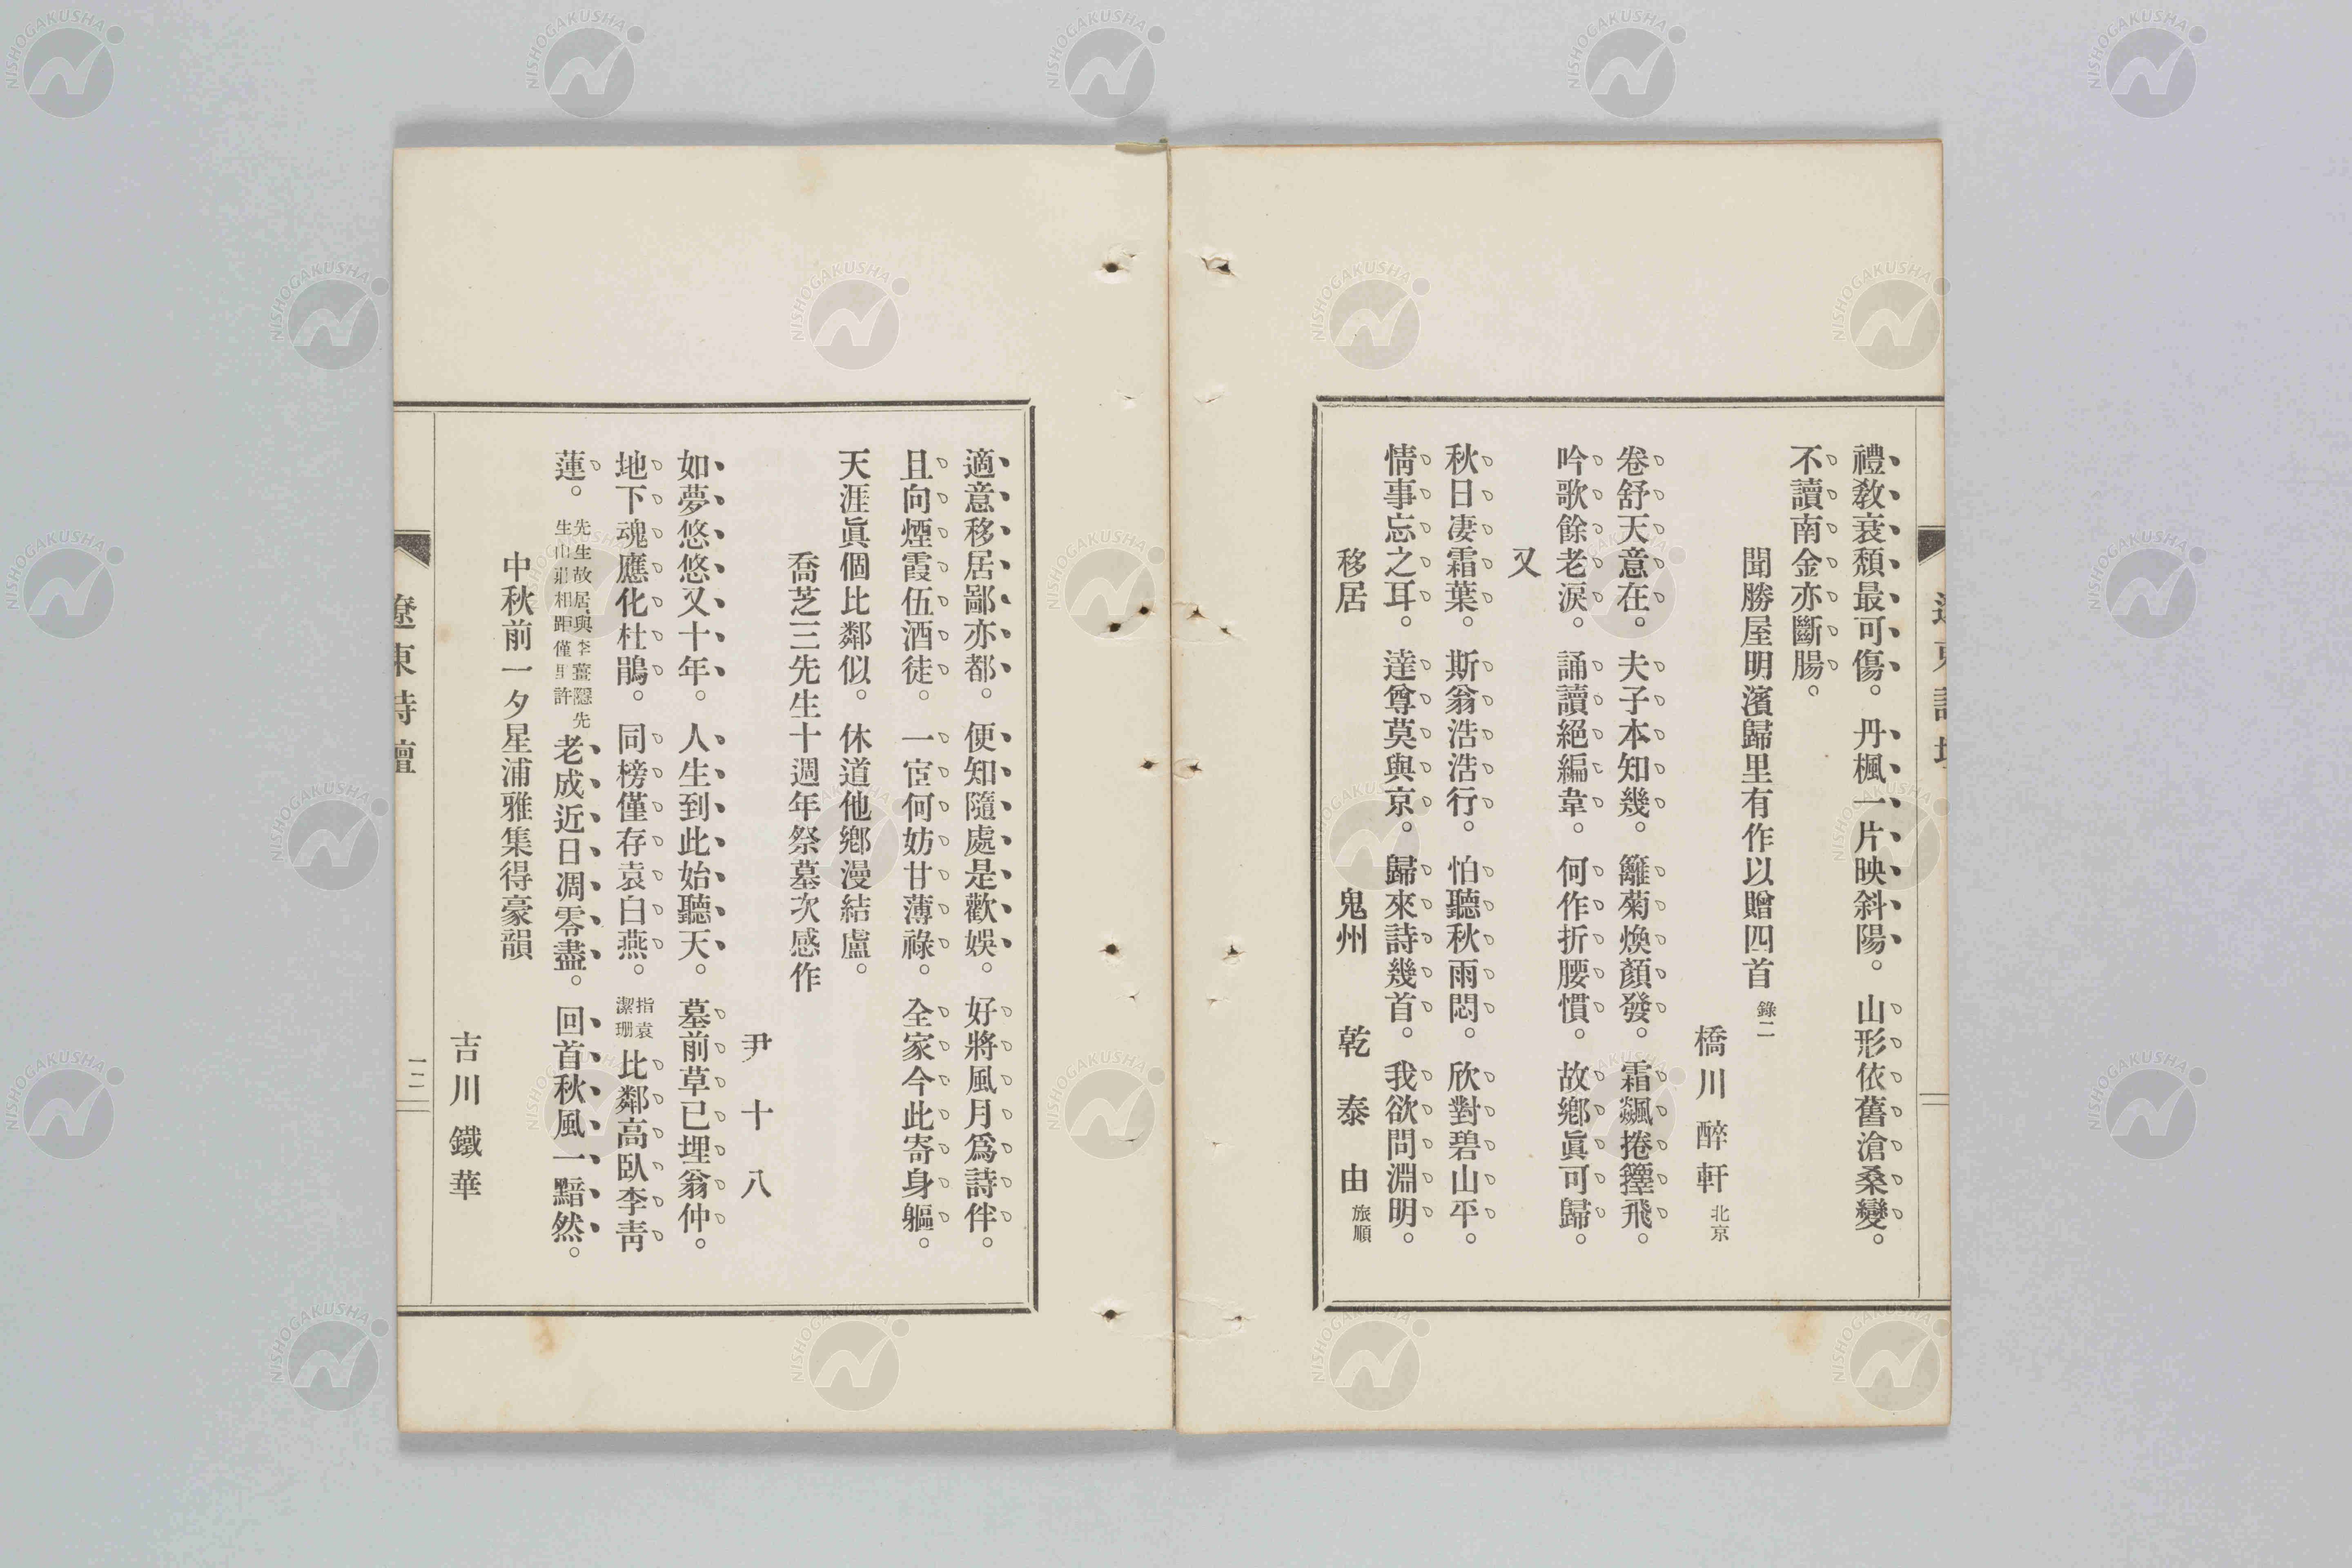 禮敎衰頽最可傷。丹楓一片映斜陽。山形依舊滄桑變。
不讀南金亦斷腸。
聞勝屋明濱歸里有作以贈四首 錄二
橋川醉軒 北京
卷舒天意在。夫子本知幾。籬菊煥顏發。霜飊捲籜飛。
吟歌餘老淚。誦讀絕編韋。何作折腰慣。故鄕眞可歸。
又
秋日凄霜葉。斯翁浩浩行。怕聽秋雨悶。欣對碧山平。
情事忘之耳。達尊莫與京。歸來詩幾首。我欲問淵明。
移居 鬼州 乾泰由 旅順
適意移居鄙亦都。便知隨處是歡娛。好將風月爲詩伴。
且向煙霞伍酒徒。一宦何妨甘薄祿。全家今此寄身軀。
天涯眞個比鄰似。休道他鄕漫結盧。
喬芝三先生十週年祭墓次感作
尹十八
如夢悠悠又十年。人生到此始聽天。墓前草已埋翁仲。
地下魂應化杜鵑。同榜僅存袁白燕。指袁潔珊比鄰高臥李靑
蓮。先生故居與李薑隱先生山莊相距僅里許老成近日凋零盡。回首秋風一黯然。
中秋前一夕星浦雅集得豪韻
吉川鐵華
遼東詩壇
一二
NISHOGAKUSHA